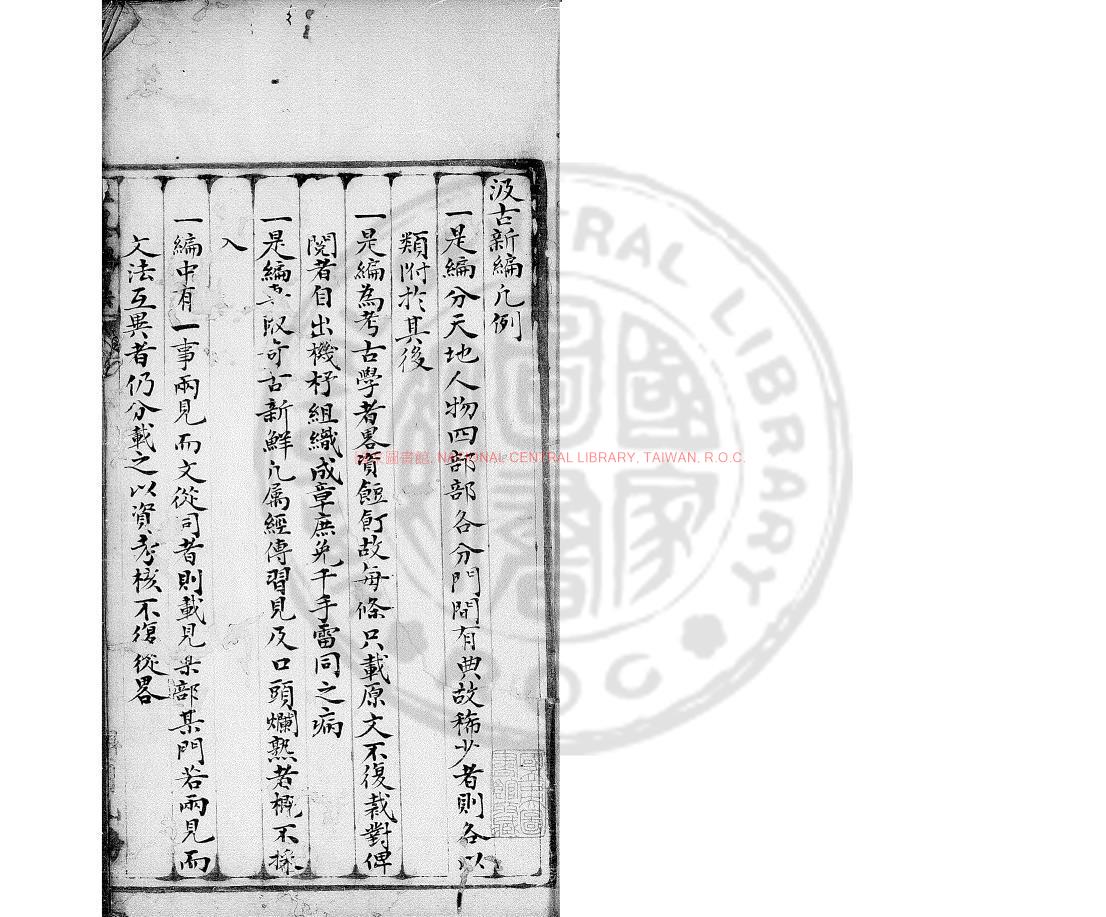 汲古新編凡例
一是編分天地人物四部部各分門間有典故稀少者則各以
類附於其後
一是編為考古學者畧資餖飣故每條只載原文不復裁對俾
閱者自出機杼組織成章庶免千手雷同之病
一是編專取奇古新鮮凡屬經傳習見及口頭爛熟者概不採
入
一編中有一事兩見而文從同者則載見某部某門若兩見而
文法互異者仍分載之以資考核不復從畧
國家圖書館, NATIONAL CENTRAL LIBRARY, TAIWAN, R.O.C.
CENTRAL LIBRARY
ROC